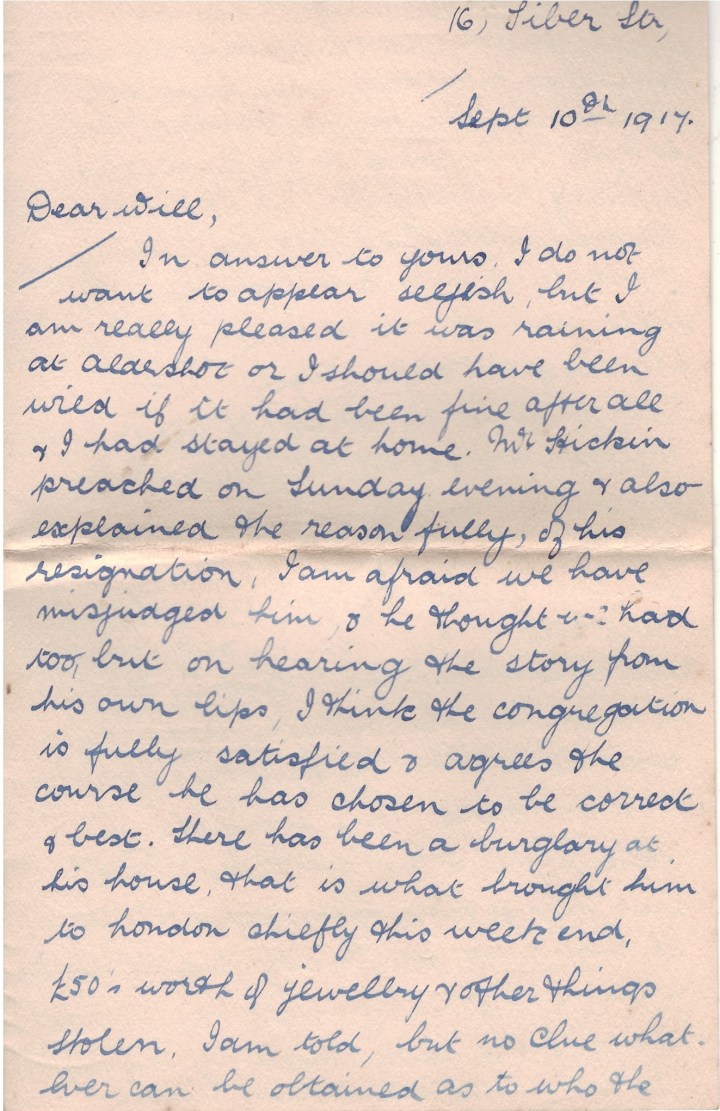 16, Siber Str,
Sept 10th 1917.
Dear Will,
In answer to yours. I do not
want to appear selfish, but I
am really pleased it was raining
at Aldershot or I should have been
wild if it had been fine after all
& I had stayed at home. Mr Hickin
preached on Sunday evening & also
explained the reason fully, of his
resignation, I am afraid we have
misjudged him, & he thought we had
too, but on hearing the story from
his own lips, I think the congregation
is fully satisfied & agrees the
course he has chosen to be correct
& best. There has been a burglary at
his house, that is what brought him
to London chiefly this week end,
£50's worth of jewellry & other things
stolen, I am told, but no clue what-
ever can be obtained as to who the